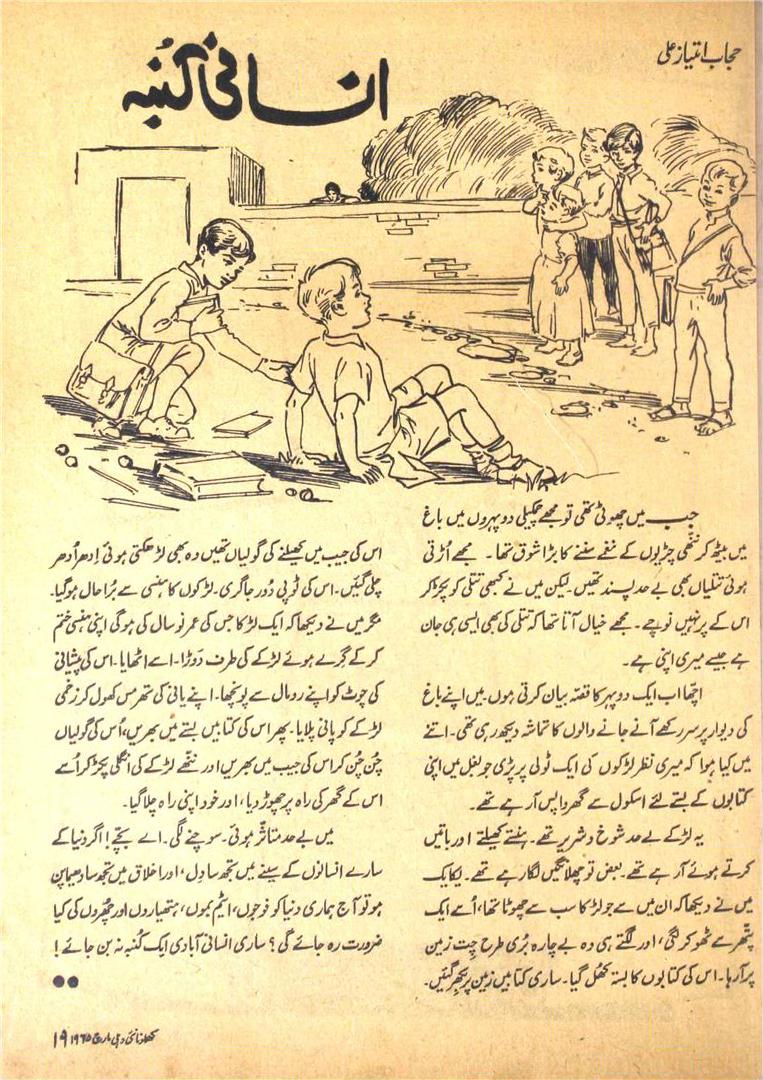 حجاب امتیاز علی
انسانی کُنبہ
جب میں چھوٹی تھی تو مجھے چمکیلی دوپہروں میں باغ
میں بیٹھ کر ننھّی چڑیوں کے نغمے سننے کا بڑا شوق تھا۔ مجھے اُڑتی
ہوئی تتلیاں بھی بے حد پسند تھیں۔ لیکن میں نے کبھی تتلی کو پکڑ کر
اس کے پر نہیں نوچے۔ مجھے خیال آتا تھا کہ تتلی کی بھی ایسی ہی جان
ہے جیسے میری اپنی ہے۔
اچھا اب ایک دوپہر کا قصّہ بیان کرتی ہوں۔ میں اپنے باغ
کی دیوار پر سر رکھے آنے جانے والوں کا تماشہ دیکھ رہی تھی۔ اتنے
میں کیا ہوا کہ میری نظر لڑکوں کی ایک ٹولی پر پڑی جو بغل میں اپنی
کتابوں کے بستے لئے اسکول سے گھر واپس آ رہے تھے۔
یہ لڑکے بے حد شوخ و شریر تھے۔ ہنستے کھیلتے اور باتیں
کرتے ہوئے آ رہے تھے۔ بعض تو چھلانگیں لگا رہے تھے۔ یکایک
میں نے دیکھا کہ ان میں سے جو لڑکا سب سے چھوٹا تھا، اُسے ایک
پتّھر سے ٹھوکر لگی، اور لگتے ہی وہ بے چارہ بُری طرح چِت زمین
پر آ رہا۔ اس کی کتابوں کا بستہ کھُل گیا۔ ساری کتابیں زمین پر بکھر گئیں۔
اس کی جیب میں کھیلنے کی گولیاں تھیں وہ بھی لڑھکتی ہوئی اِدھر اُدھر
چلی گئیں۔ اس کی ٹوپی دُور جا گری۔ لڑکوں کا ہنسی سے بُرا حال ہوگیا۔
مگر میں نے دیکھا کہ ایک لڑکا جس کی عمر نو سال کی ہوگی اپنی ہنسی ختم
کر کے گِرے ہوئے لڑکے کی طرف دَوڑا۔ اسے اٹھایا۔ اس کی پیشانی
کی چوٹ کو اپنے رومال سے پونچھا۔ اپنے پانی کی تھرمس کھول کر زخمی
لڑکے کو پانی پلایا۔ پھر اس کی کتابیں بستے میں بھریں، اُس کی گولیاں
چُن چُن کر اس کی جیب میں بھریں اور ننھّے لڑکے کی انگلی پکڑ کر اُسے
اس کے گھر کی راہ پر چھوڑ دیا، اور خود اپنی راہ چلا گیا۔
میں بے حد متاثّر ہوئی۔ سوچنے لگی۔ اے بچّے! اگر دنیا کے
سارے انسانوں کے سینے میں تجھ سا دِل، اور اخلاق میں تجھ سا دھیما پن
ہو تو آج ہماری دنیا کو فوجوں، ایٹم بموں، ہتھیاروں اور چھُروں کی کیا
ضرورت رہ جائے گی؟ ساری انسانی آبادی ایک کُنبہ نہ بن جائے!
کھلونا نئی دہلی مارچ ۱۹۶۵ ۱۹